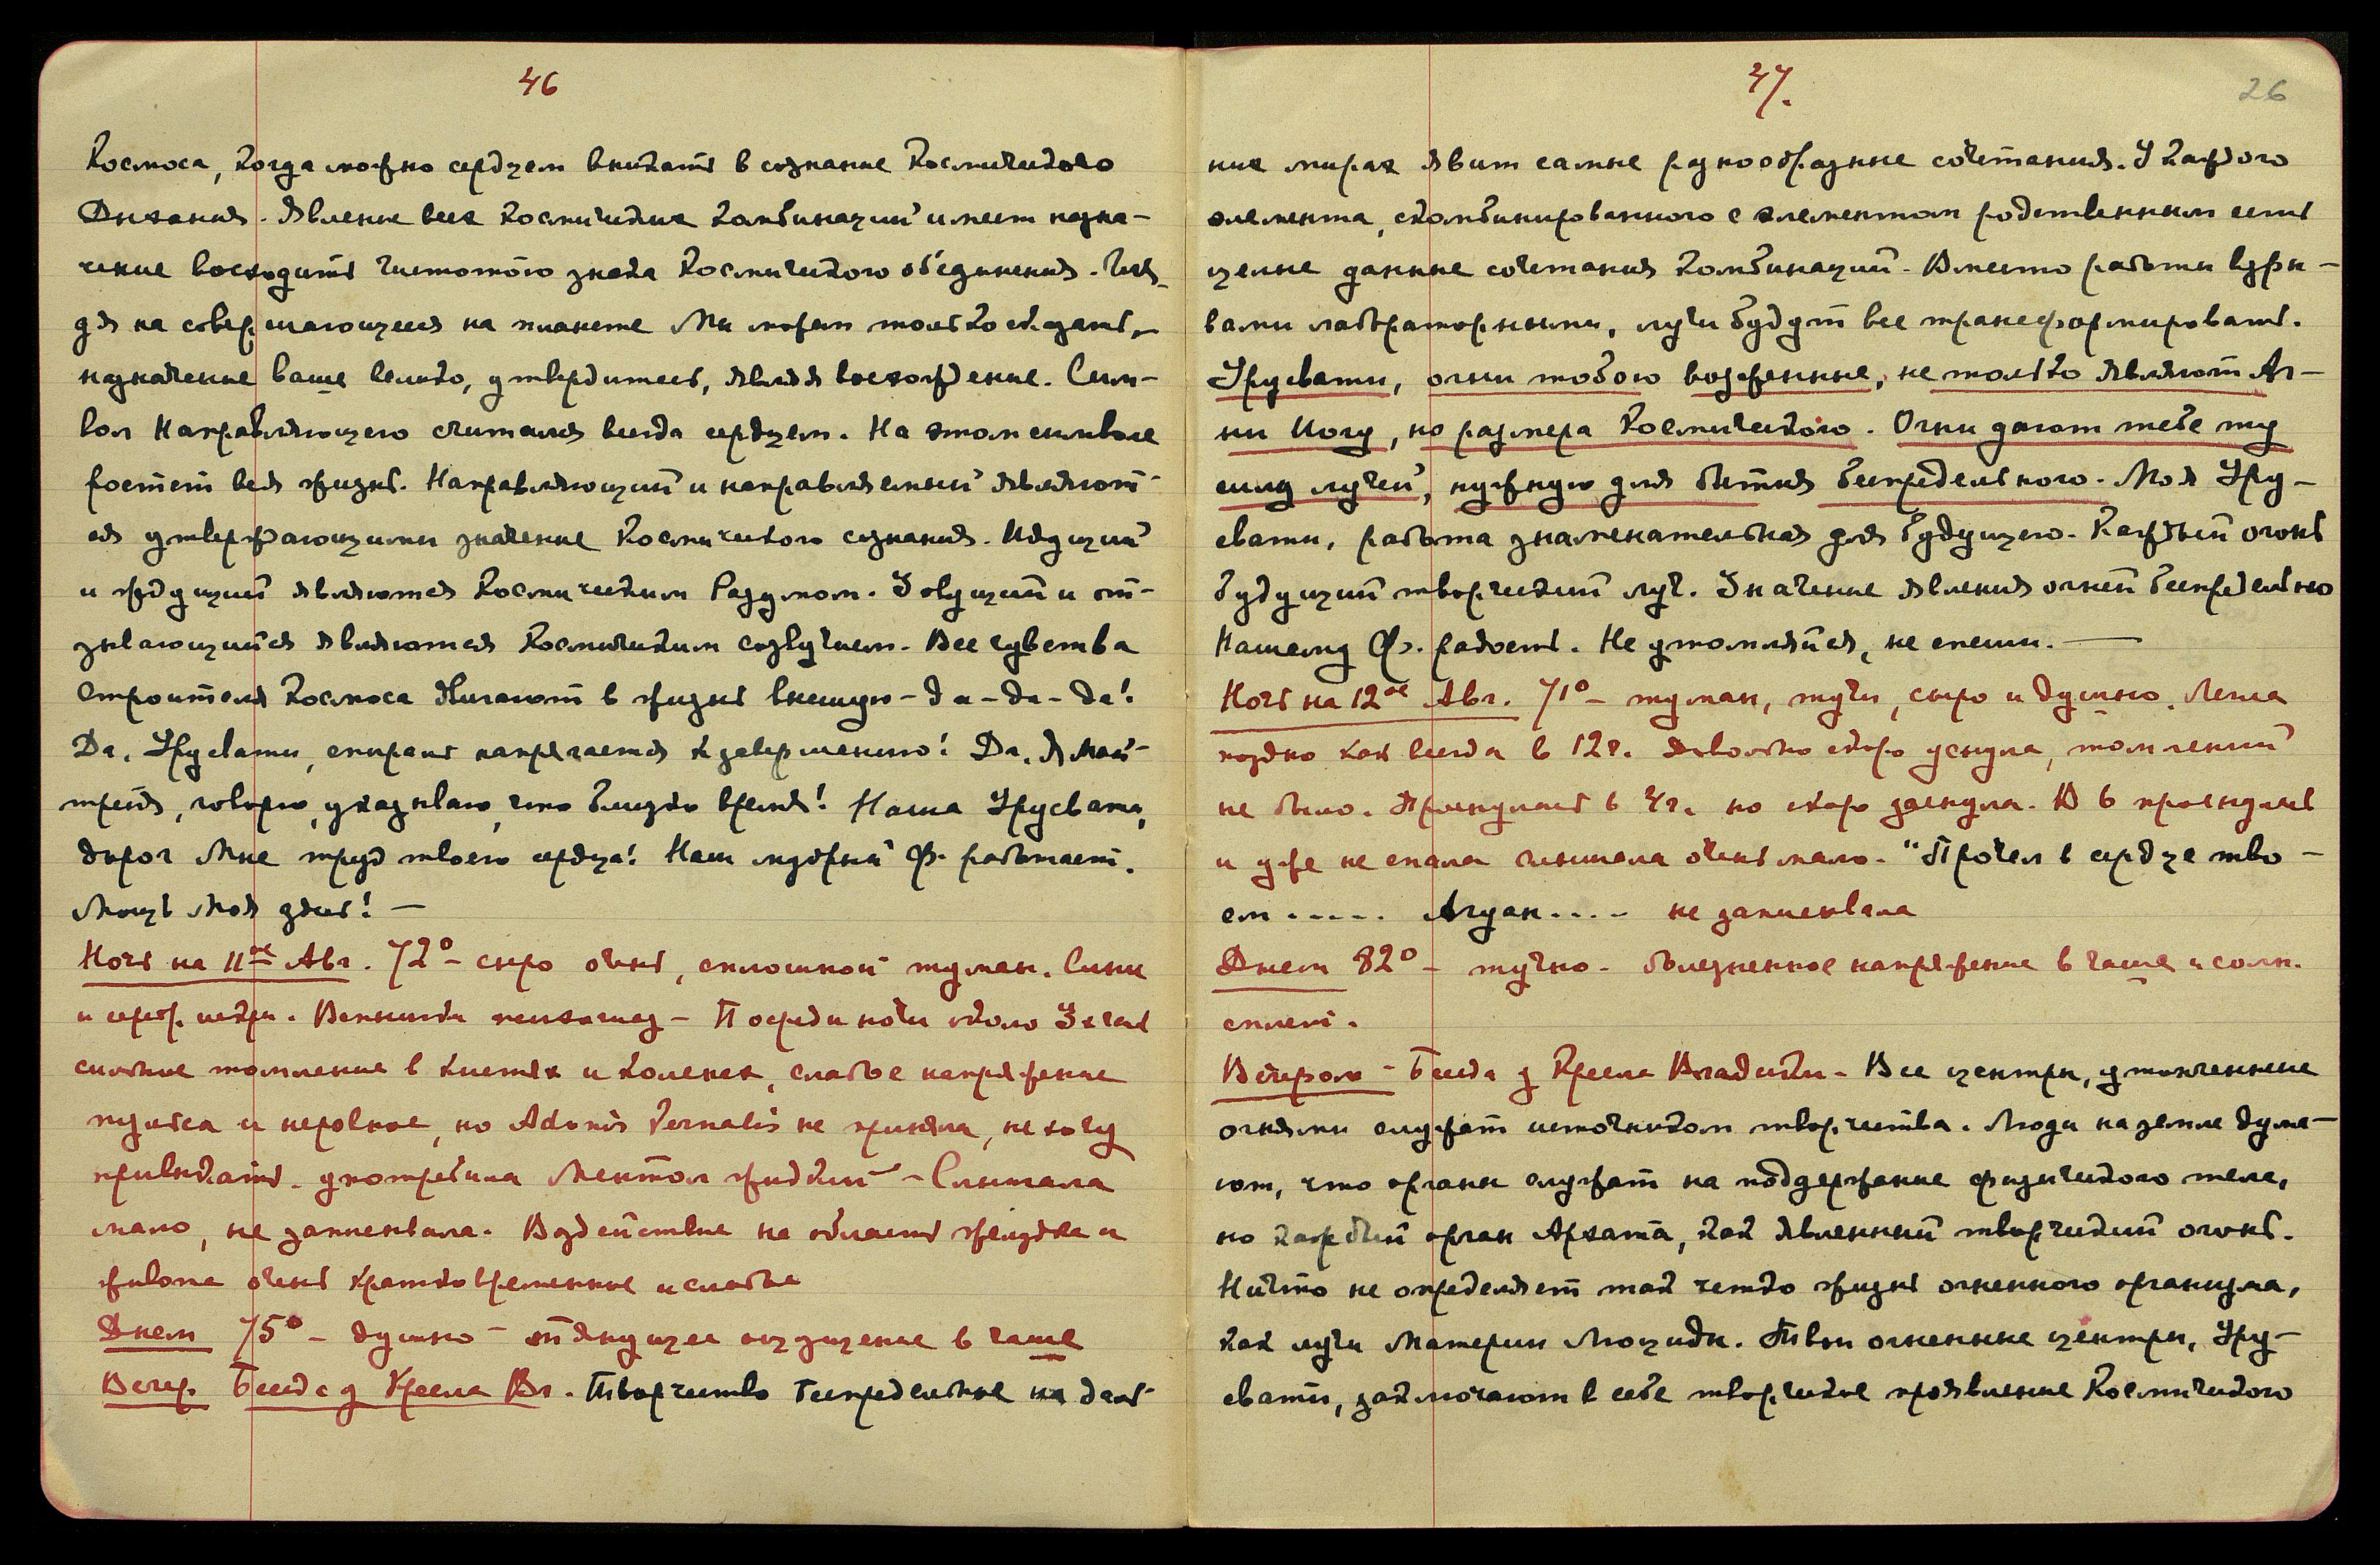 46
Космоса, когда можно сердцем вникать в сознание Космического
Дыхания. Явление всех Космических комбинаций имеет назна-
чение восходить чистотою знака Космического объединения. Гля-
дя на совершающееся на планете Мы можем только сказать, —
назначение ваше велико, утвердитесь, являя восхождение. Сим-
вол Направляющего считался всегда сердцем. На этом символе
ростет вся жизнь. Направляющий и направляемый являют-
ся утверждающими значение Космического сознания. Идущий
и ждущий являются Космическим Разумом. Зовущий и от-
зывающийся являются Космическим созвучием. Все чувства
строителя Космоса вдыхают в жизнь высшую — да — да — да!
Да, Урусвати, спираль напрягается к завершению! Да, Я Май-
трейя, говорю, указываю, что близко время! Наша Урусвати,
дорог Мне труд твоего сердца! Наш мудрый Ф. работает.
Мощь Моя здесь! —
Ночь на 11ое Авг. 72° — сыро очень, сплошной туман. Синие
и серебр. искры. Вспышки — Посреди ночи около 3х час
сильное томление в кистях и коленях, слабое напряжение
пульса и неровное, но Adonis Vernalis не приняла, не хочу
привыкать. употребила Ментол жидкий — Слышала
мало, не записывала. Воздействие на область желудка и
живота очень кратковременное и слабое
Днем 75° — душно — оттянущее ощущение в чаше
Вечер. Беседа у Кресла Вл. Творчество беспредельное на даль-
47.
26
них мирах явит самые разнообразные сочетания. У каждого
элемента, скомбинированного с элементом родственным есть
целые данные сочетания комбинаций. Вместо работы взры-
вами лабораторными, лучи будут все трансформировать.
Урусвати, огни тобою возженные, не только являют Аг-
ни Йогу, но размера Космического. Огни дают тебе ту
силу лучей, нужную для бытия беспредельного. Моя Уру-
свати, работа знаменательная для будущего. Каждый огонь
будущий творческий луч. Значение явления огней беспредельно
Нашему Ф. радость. Не утомляйся, не спеши. —
Ночь на 12ое Авг. 71° — туман, тучи, сыро и душно. Легла
поздно как всегда в 12ч. Довольно скоро уснула, томлений
не было. Проснулась в 4ч. но скоро заснула. В 6 проснулась
и уже не спала слышала очень мало. "Прочел в сердце тво-
ем ..... Агуан .... не записывала
Днем 82° — тучно — болезненное напряжение в чаше и солн.
сплет.
Вечером — Беседа у Кресла Владыки. Все центры, утонченные
огнями служат источником творчества. Люди на земле дума-
ют, что органы служат на поддержание физического тела,
но каждый орган Архата, как явленный творческий огонь.
Ничто не определяет так четко жизнь огненного организма,
как лучи Материи Люциды. Твои огненные центры, Уру-
свати, заключают в себе творческое проявление Космического